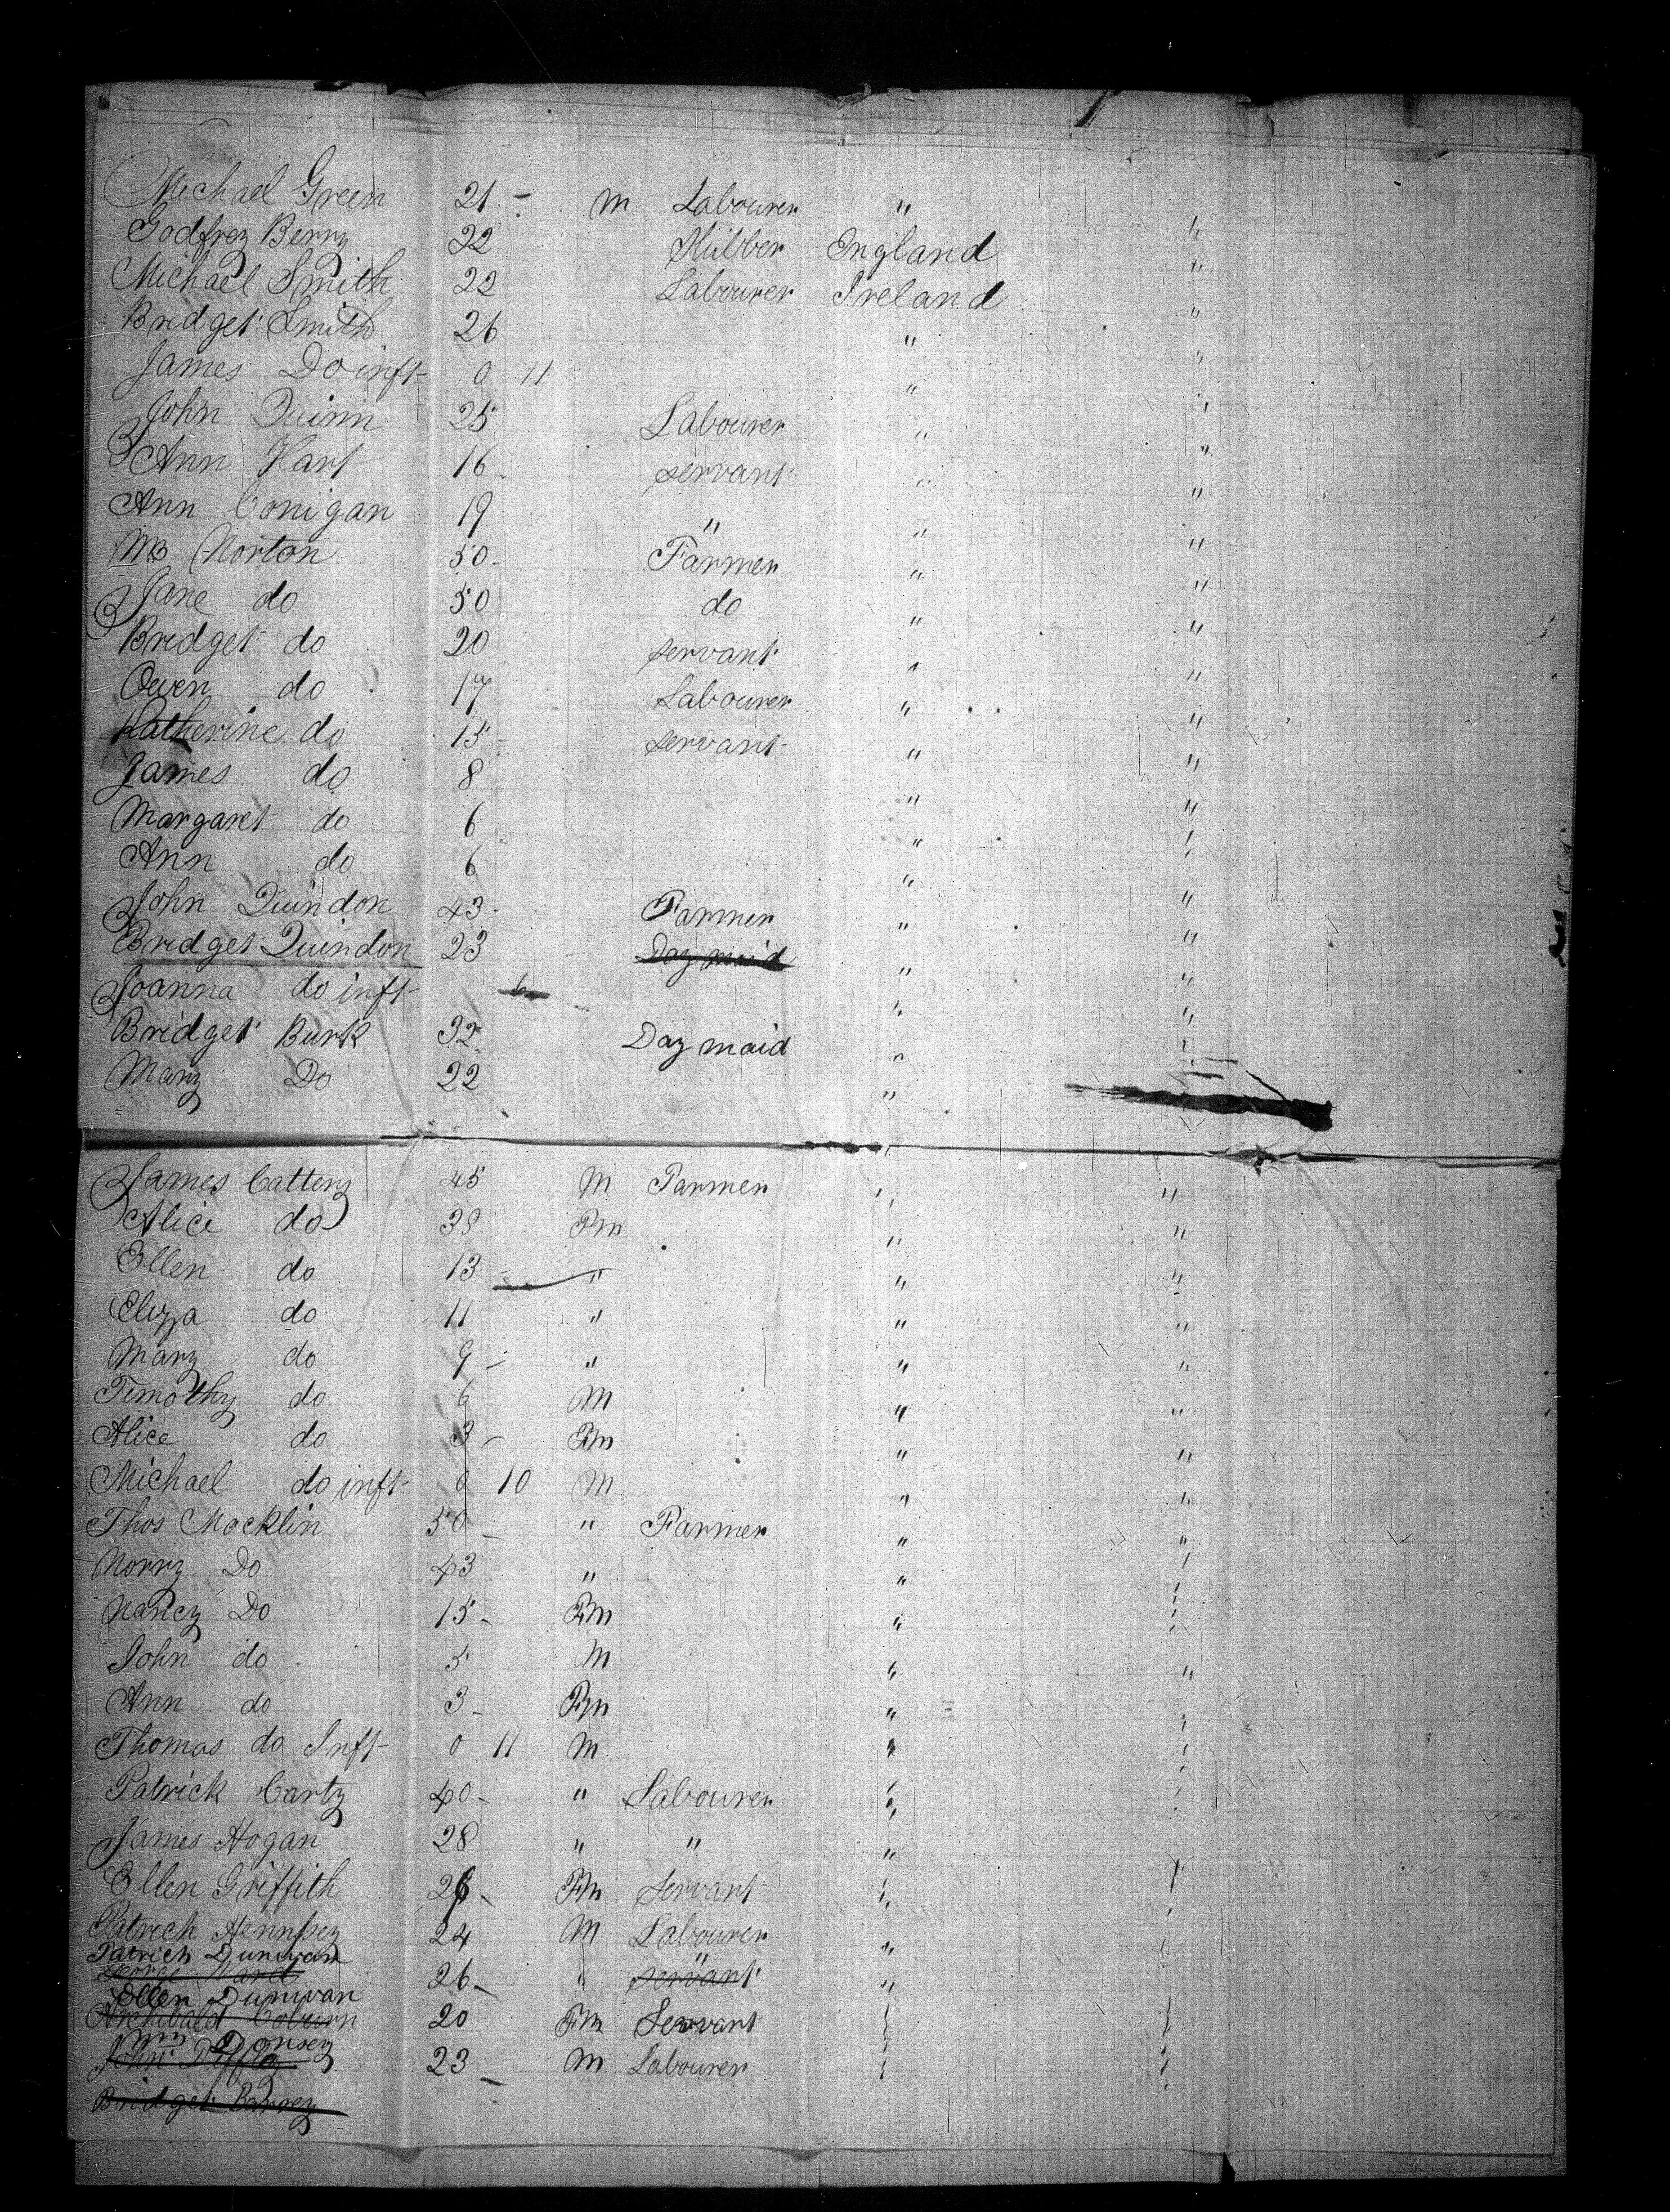 Michael Green 21 - m Labourer "
Godfrey Berry 22 England "
Michael Smith 22 Labourer Ireland "
Bridget Smith 26 " "
James Do inft 0 11 " "
John Quinn 25 Labourer " "
Ann Hart 16 servant " "
Ann Conigan 19 " " "
Norton 50 - Farmer " "
Jane do 50 do " "
Bridget do 20 servant " "
Owen do 17 Labourer " "
Katherine do 15 servant " "
James do 8 " "
Margaret do 6 " "
Ann do 6 " "
John Quindon 43 - Farmer " "
Bridget Quindon 23 Day maid " "
Joanna do inft 6 " "
Bridget Burk 32 Day maid " "
Mary Do 22 "
James Cattery 45 M Farmer " "
Alice do 38 Fm " "
Ellen do 13 - " " "
Eliza do 11 " " "
Mary do 9 - " " "
Timothy do 6 M " "
Alice do 3 - Fm " "
Michael do inft 0 10 M " "
Thos Mocklin 50 - " Farmer " "
Norry Do 43 " " "
Nancy Do 15 - Fm " "
John do 5 M " "
Ann do 3 - Fm " "
Thomas do Inft 0 11 M " "
Patrick Carty 40 - " Labourer " "
James Hogan 28 " " "
Ellen Griffith 26 - Fm Servant " "
Patrech Hennsey 24 M Labourer " "
Patrich Dunivan "
George Ward 26 - " servant "
Ellen Dunivan
Archibald Coburn 20 Fm Servant " "
Wm Dorsey
John 23 - M Labourer " "
Bridget Barrey